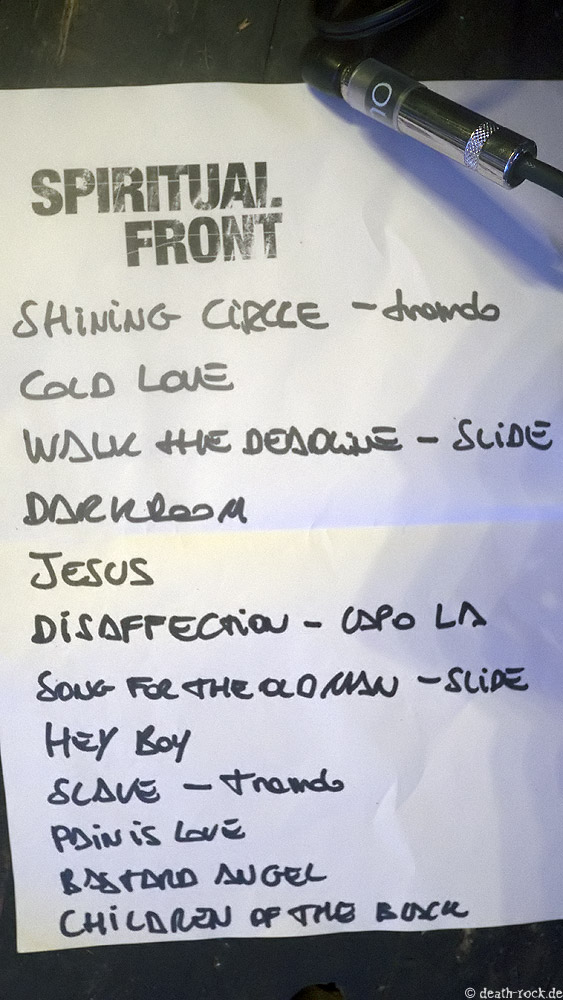 no
SPIRITUAL
FRONT
SHiNiNG CiRCLE – tremolo
COLD LOVE
WALK tHE DEADLiNE – SLiDE
DARKROOM
JESUS
DiSAFFECtiON – CAPO LA
SONG FOR tHE OLD MAN – SLiDE
HEY BOY
SLAVE – tremolo
PAiN iS LOVE
BAStARD ANGEL
CHiLDREN OF tHE BLACK
© death-rock.de